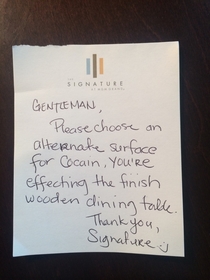 THE
SIGNATURE
AT MGM GRAND
GENTLEMAN,
Please choose an
alternate surface
for Cocain, you're
effecting the finish
wooden dining table.
Thank you,
Signature :)